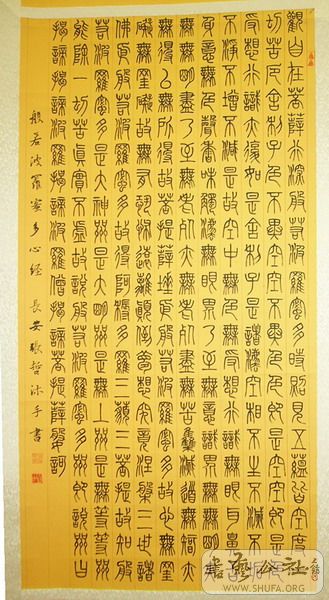 觀自在菩薩行深般若波羅蜜多時照見五蘊皆空度一
切苦厄舍利子色不異空空不異色色即是空空即是色
受想行識亦復如是舍利子是諸法空相不生不滅不垢
不淨不增不減是故空中無色無受想行識無眼耳鼻舌
身意無色聲香味觸法無眼界乃至無意識界無無明亦無
無明盡乃至無老死亦無老死盡無苦集滅道無智亦
無得以無所得故菩提薩埵依般若波羅蜜多故心無罣
礙無罣礙故無有恐怖遠離顛倒夢想究竟涅槃三世諸
佛依般若波羅蜜多故得阿耨多羅三藐三菩提故知般
若波羅蜜多是大神咒是大明咒是無上咒是無等等咒
能除一切苦真實不虛故說般若波羅蜜多咒即說咒曰
揭諦揭諦波羅揭諦波羅僧揭諦菩提薩婆訶
般若波羅蜜多心經 長安張哲沐手書
WWW.SHUFA.ORG